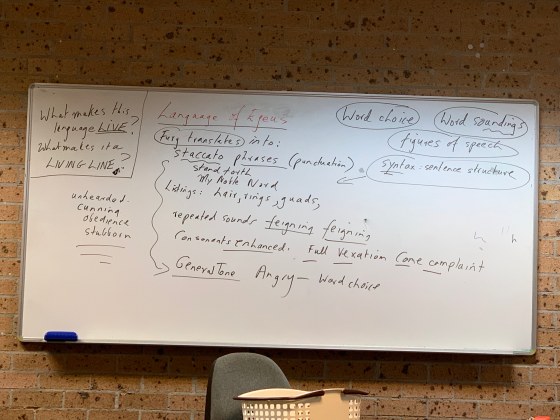 What makes this
language LIVE?
What makes it a
LIVING LINE?
unhearded.
cunning
obedience
stubborn
Language of Egeus
Fury translates into:
staccato phrases (punctuation)
stand forth
My Noble Nord
Listings: hair, rings, guads,
repeated sounds feigning feigning
Consonents enhanced. Full Vexation Come complaint
General Tone Angry — Word choice
Word choice
Word soundings
figures of speech
Syntax: sentence structure